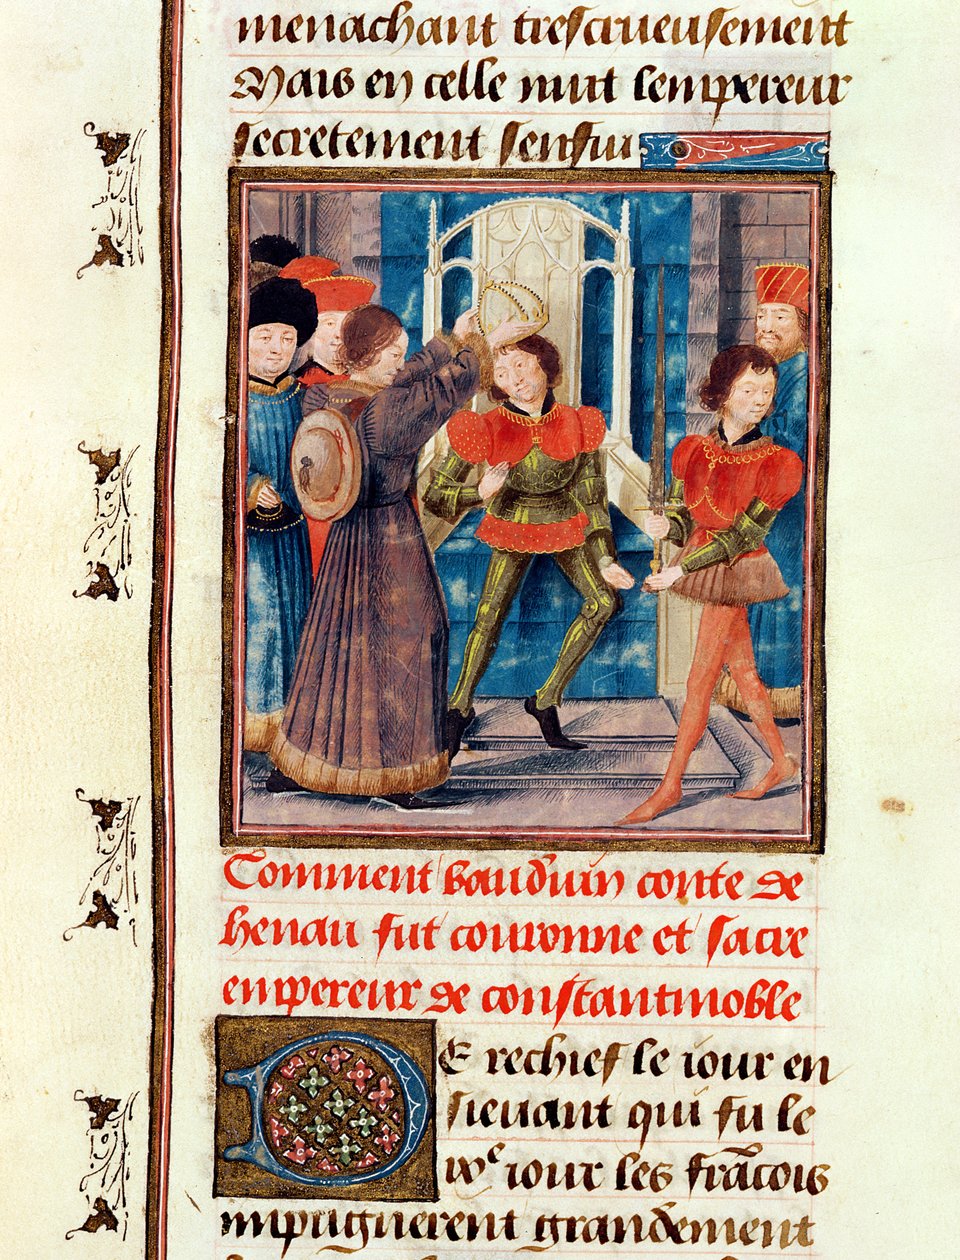 menachant trescrueusement
Mais en celle nuit lempereur
secretement senfui
Comment bauduin conte de
henau fut couronne et sacre
empereur de constantinoble
DE rechief le iour en
sieuant qui fu le
xx̊e iour les frãcois
impugnerent grandement